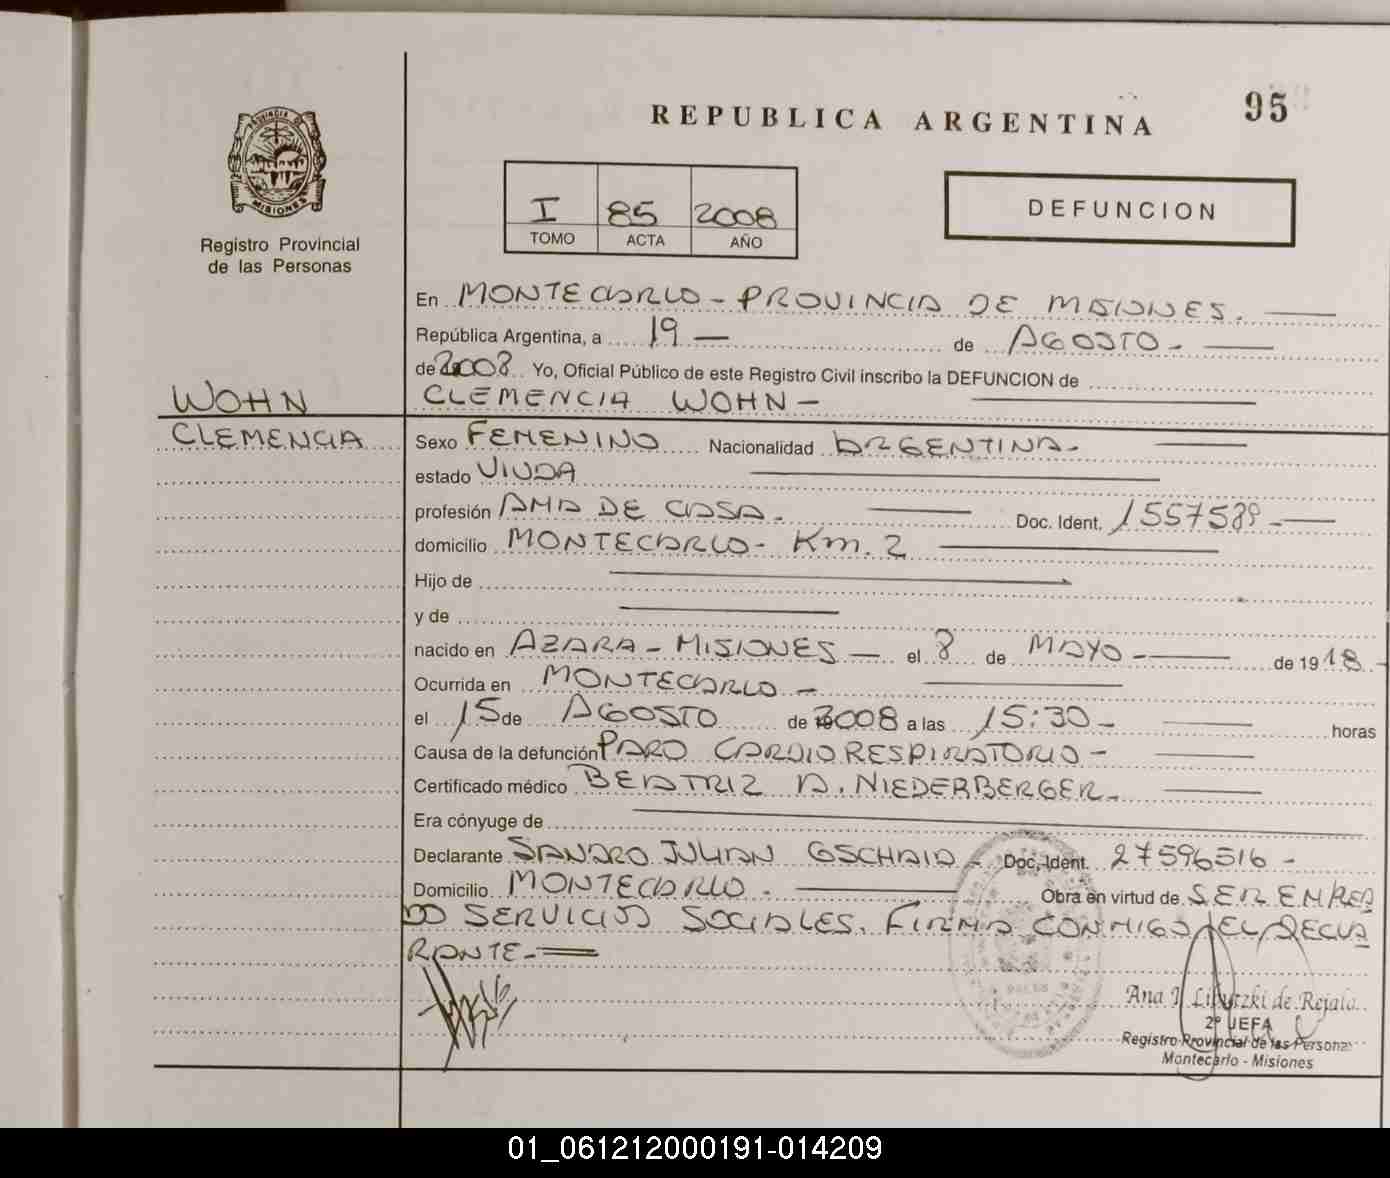 95
REPUBLICA ARGENTINA
PROVINCIA DE
MISIONES
Registro Provincial
de las Personas
I 85 2008
TOMO ACTA AÑO
DEFUNCION
En MONTECARLO - PROVINCIA DE MISIONES. —
República Argentina, a 19 — de AGOSTO - —
de 2008 Yo, Oficial Público de este Registro Civil inscribo la DEFUNCION de
WOHN
CLEMENCIA WOHN -
CLEMENCIA
Sexo FEMENINO Nacionalidad ARGENTINA -
estado VIUDA
profesión AMA DE CASA. Doc. Ident. 1557589 -
domicilio MONTECARLO - Km. 2
Hijo de
y de
nacido en AZARA - MISIONES — el 8 de MAYO - de 1918 -
Ocurrida en MONTECARLO -
el 15 de AGOSTO de 2008 a las 15:30 - horas
Causa de la defunción PARO CARDIORESPIRATORIO -
Certificado médico BEATRIZ A. NIEDERBERGER -
Era cónyuge de
Declarante SANDRO JULIAN GSCHAID - Doc. Ident. 27596516 -
Domicilio MONTECARLO - Obra en virtud de SER EMPLEA
DO SERVICIOS SOCIALES. FIRMA CONMIGO EL DECLA
RANTE -
Ana I. de Rejala
2º JEFA
Registro Provincial de las Personas
Montecarlo - Misiones
01_061212000191-014209